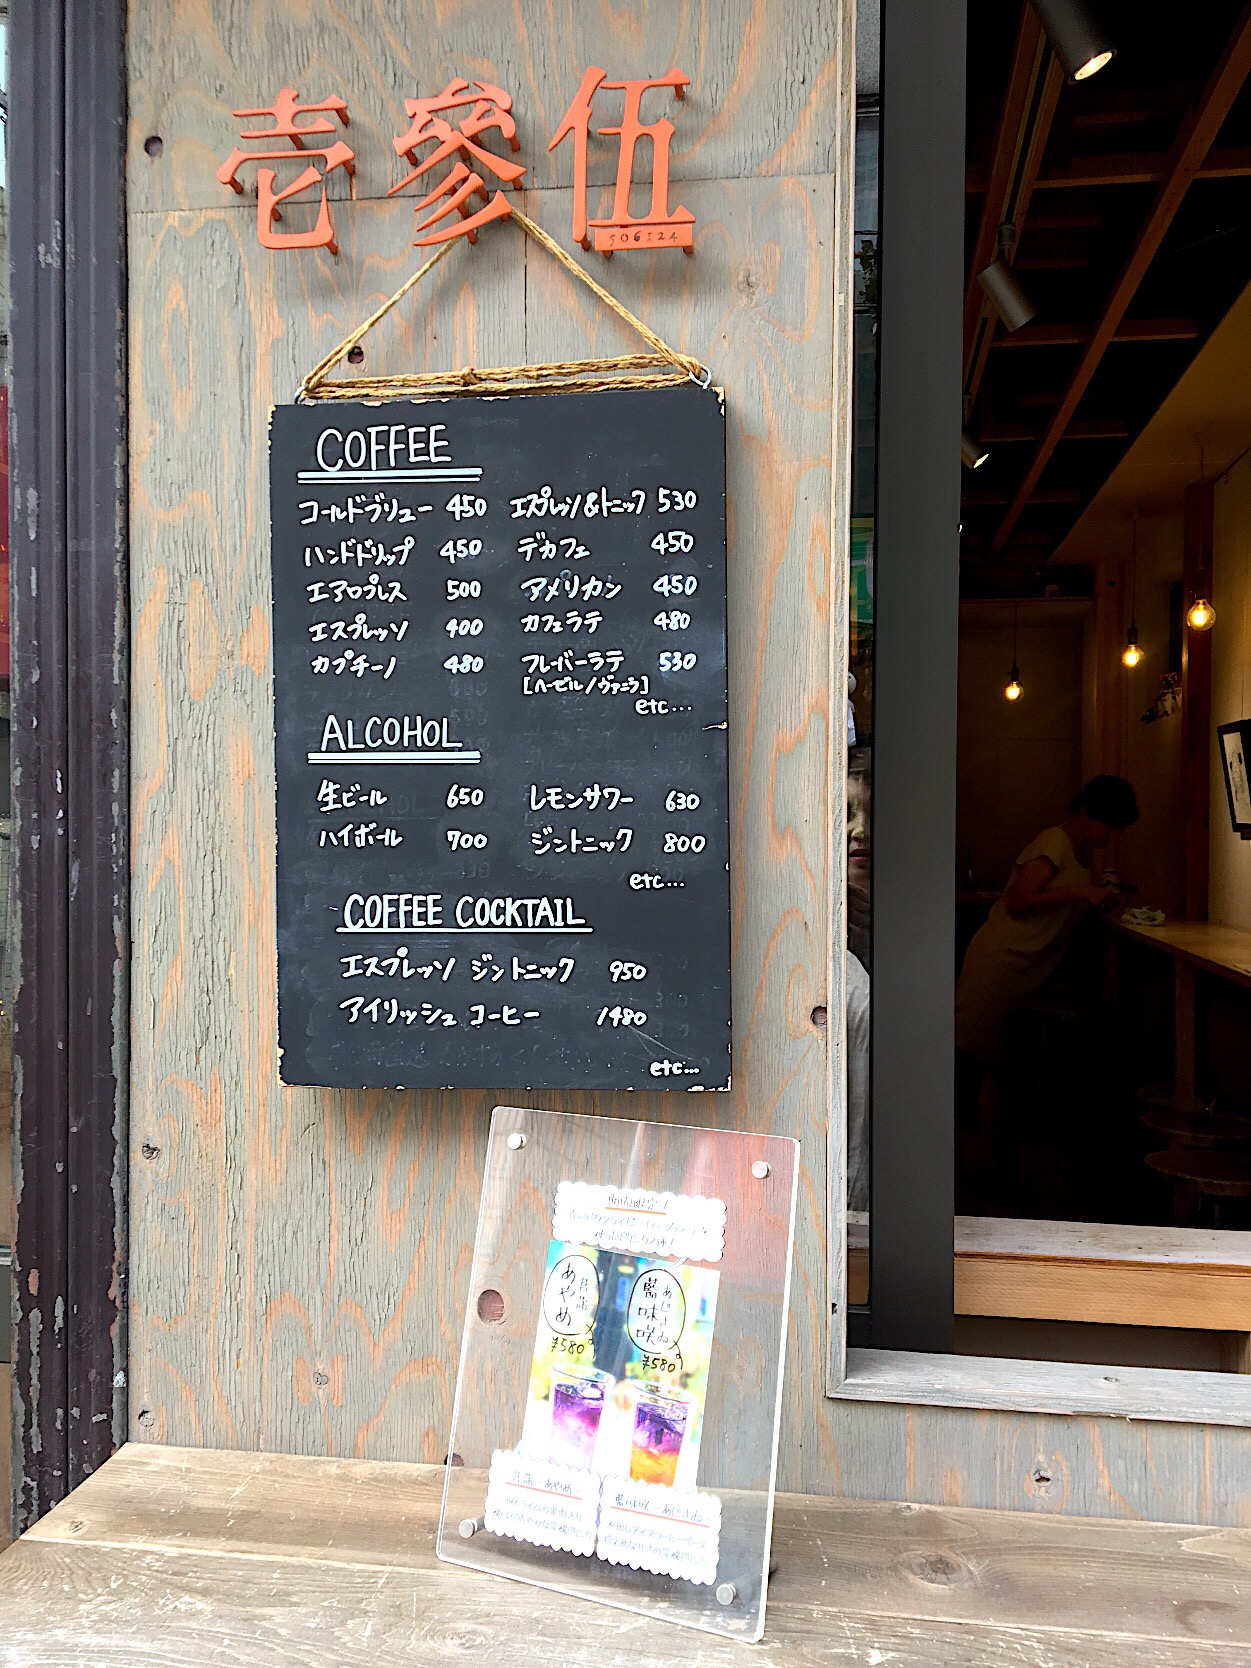 壱參伍
506124
COFFEE
コールドブリュー 450 エスプレッソ&トニック 530
ハンドドリップ 450 デカフェ 450
エアロプレス 500 アメリカン 450
エスプレッソ 400 カフェラテ 480
カプチーノ 480 フレーバーラテ 530
[ヘーゼル/ヴァニラ]
etc...
ALCOHOL
生ビール 650 レモンサワー 630
ハイボール 700 ジントニック 800
etc...
COFFEE COCKTAIL
エスプレッソ ジントニック 950
アイリッシュ コーヒー 1480
etc...
期間限定!
菖蒲 あやめ ¥580
あじさゐ 藍味咲 ¥580
菖蒲-あやめ-
藍味咲-あじさゐ-